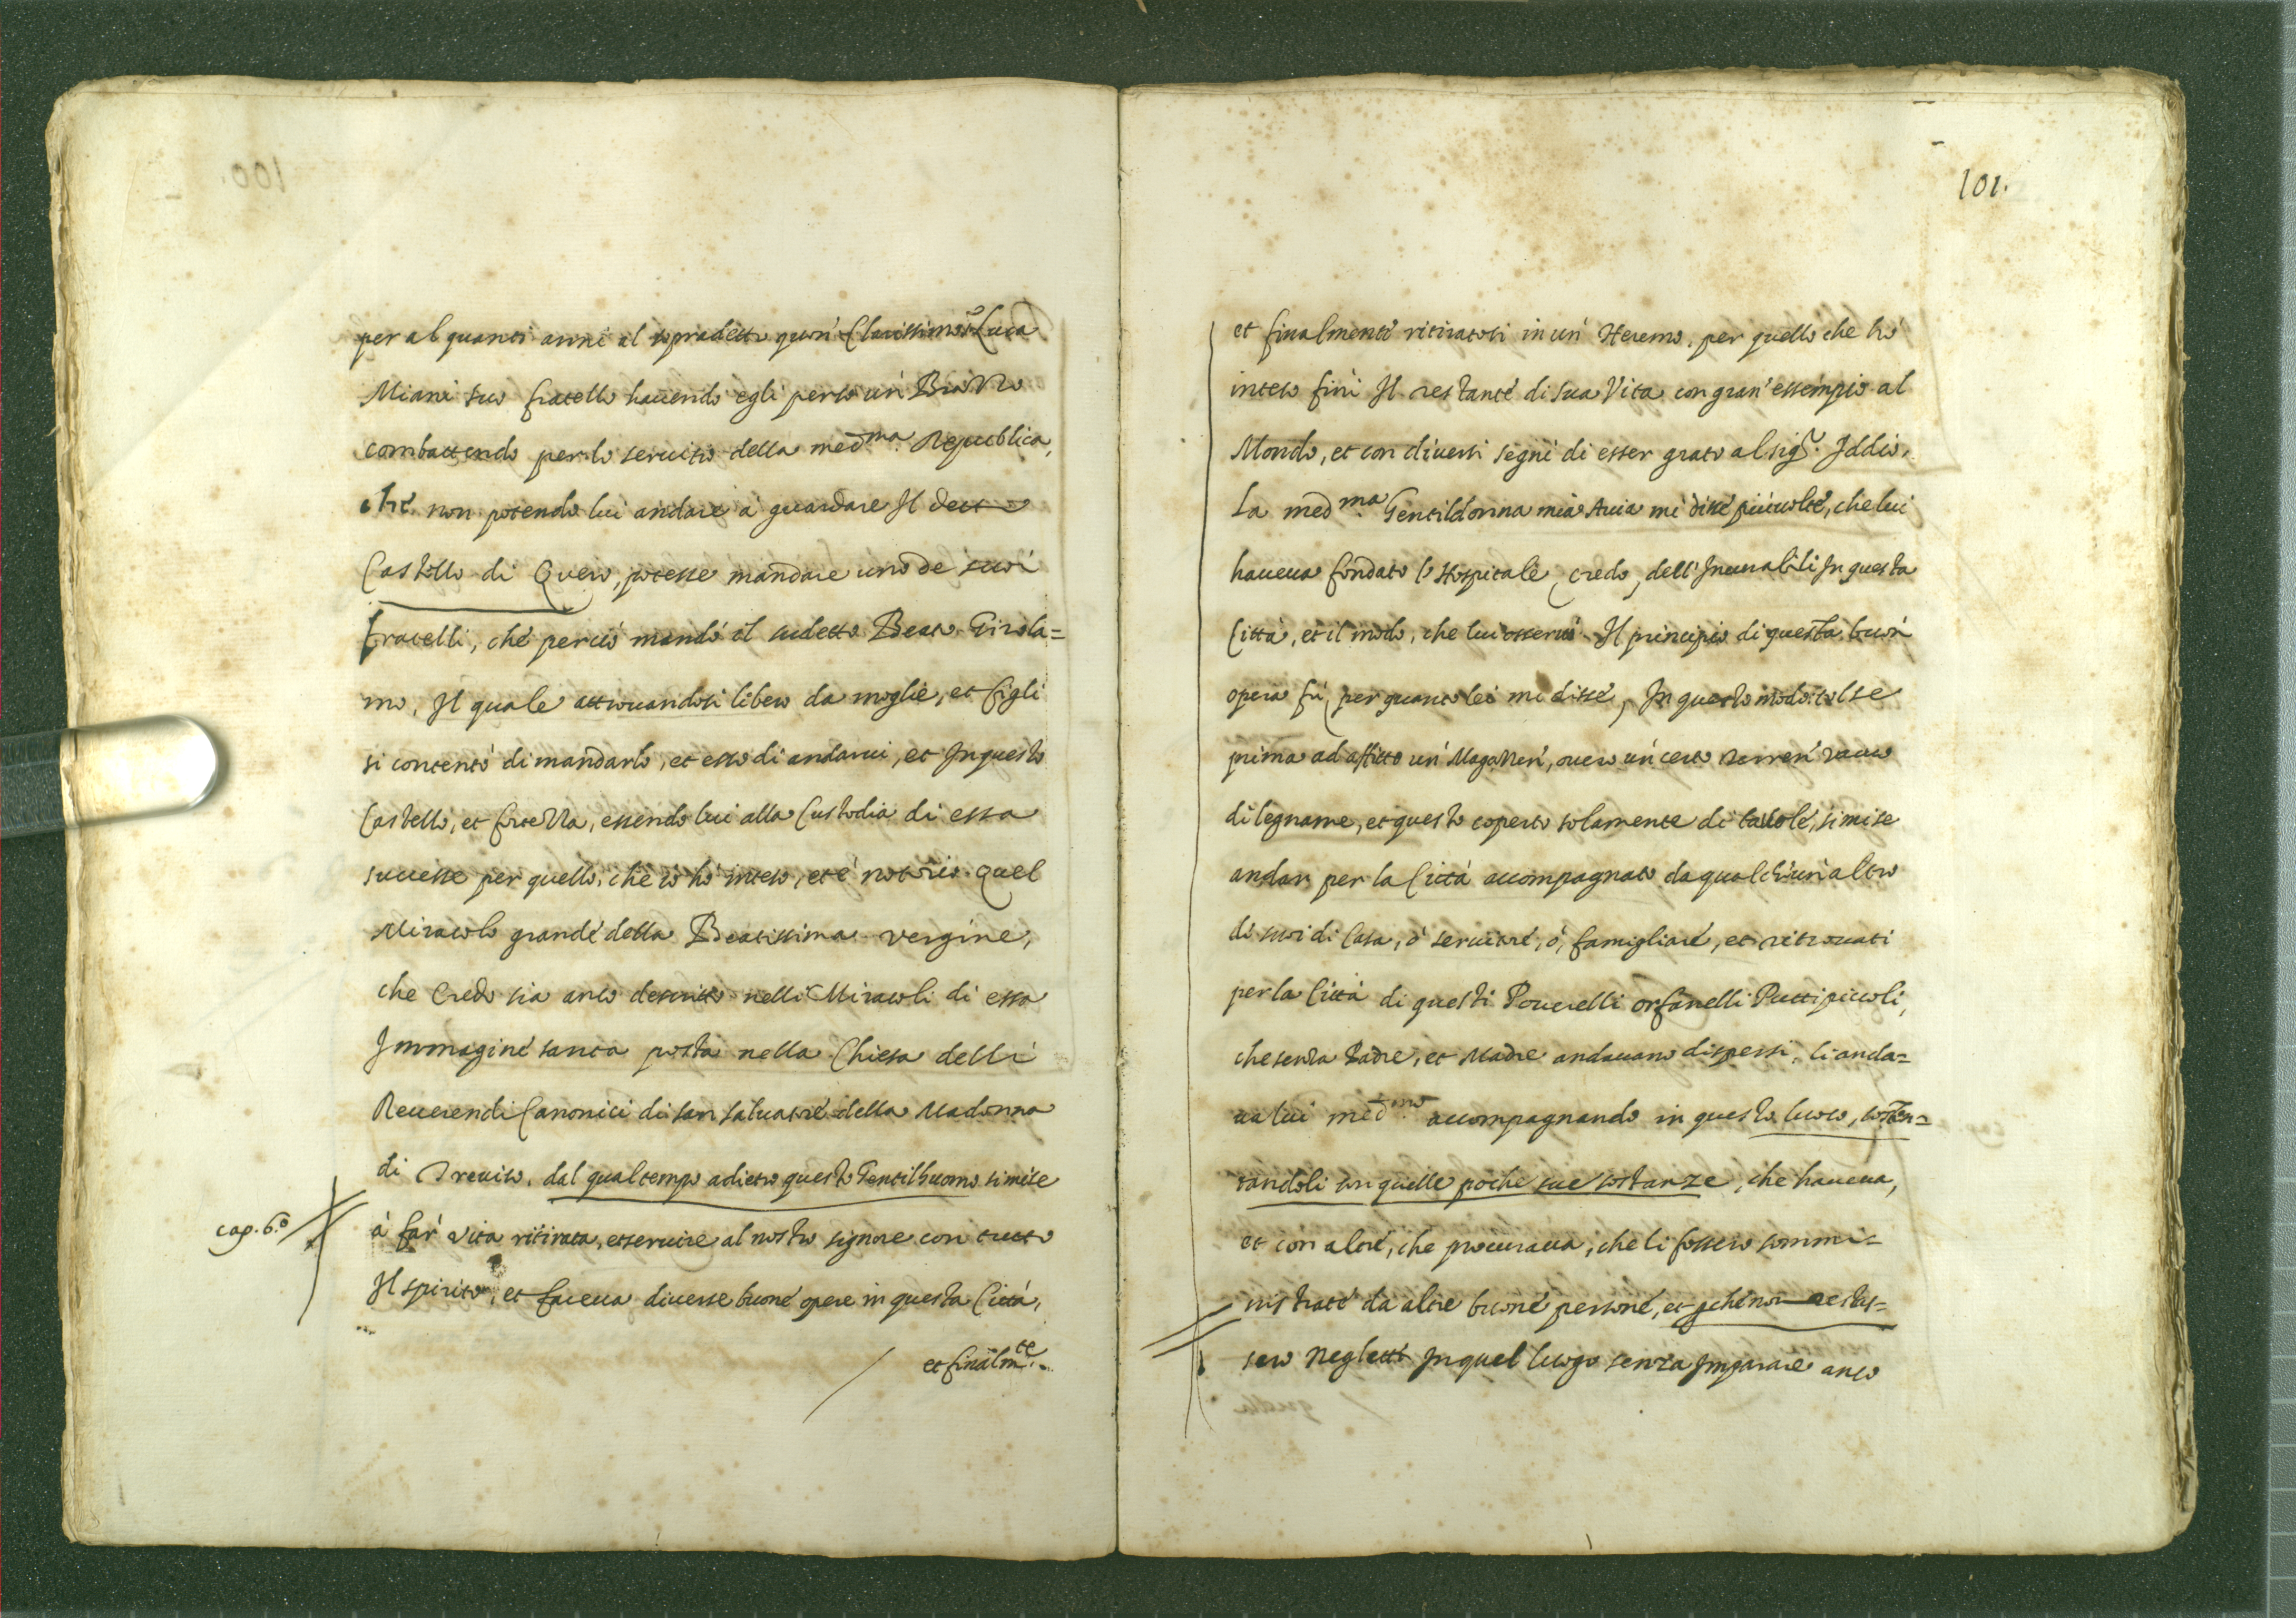 per alquanti anni al sopradetto quon' Clarissimo Luca
Miani suo fratello hauendo egli perso un' Brazzo
combattendo per lo seruitio della med.ma Republica,
che non potendo lui andare à guardare Il detto
Castello di Quero, potesse mandare uno de suoi
fratelli, che perciò mandò il sudetto Beato Girola=
mo, Il quale attrouandosi libero da moglie, et figli
si contentò di mandarlo, et esso di andarui, et In questo
Castello, et fortezza, essendo lui alla Custodia di essa
successe per quello, che io hò inteso, et è notorio quel
Miracolo grande della Beatissima vergine,
che Credo sia anco descritto nelli Miracoli di essa
Immagine santa posta nella Chiesa delli
Reuerendi Canonici di san saluatore della Madonna
di Treuiso. dal qual tempo adietro questo Gentilhuomo si mise
cap. 6.o
à far' vita ritirata, et seruire al nostro signore con tutto
Il spirito, et faceua diuerse buone opere in questa Città,
et finalm.te
101.
et finalmente ritiratosi in un' Heremo, per quello che hò
inteso finì Il restante di sua Vita con gran' essempio al
Mondo, et con diuersi segni di esser grato al sig.r Iddio.
La med.ma Gentildonna mia Auia mi disse più uolte, che lui
haueua fondato l'Hospitale, credo, dell'Incurabili In questa
Città, et il modo, che lui osseruò Il principio di questa buon'
opera fù, per quanto lei mi disse, In questo modo: tolse
prima ad affitto un' Magazen', ouero un certo terren' vacuo
di legname, et questo coperto solamente di tauole, si mise
andar per la Città accompagnato da qualch'un' altro
di suoi di Casa, ò seruitore, ò, famigliare, et ritrouati
per la Città di questi Pouerelli orfanelli Putti piccoli,
che senza Padre, et Madre andauano dispersi, li anda=
ua lui med.mo accompagnando in questo luoco, sosten=
tandoli con quelle poche sue sostanze, che haueua,
et con altre, che procuraua, che li fossero sommi=
nistrate da altre buone persone, et pche non restas=
sero negletti In quel luogo senza Imparare anco